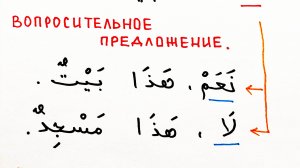 ВОПРОСИТЕЛЬНОЕ
ПРЕДЛОЖЕНИЕ.
نَعَمْ، هَذَا بَيْتٌ.
لَا، هَذَا مَسْجِدٌ.